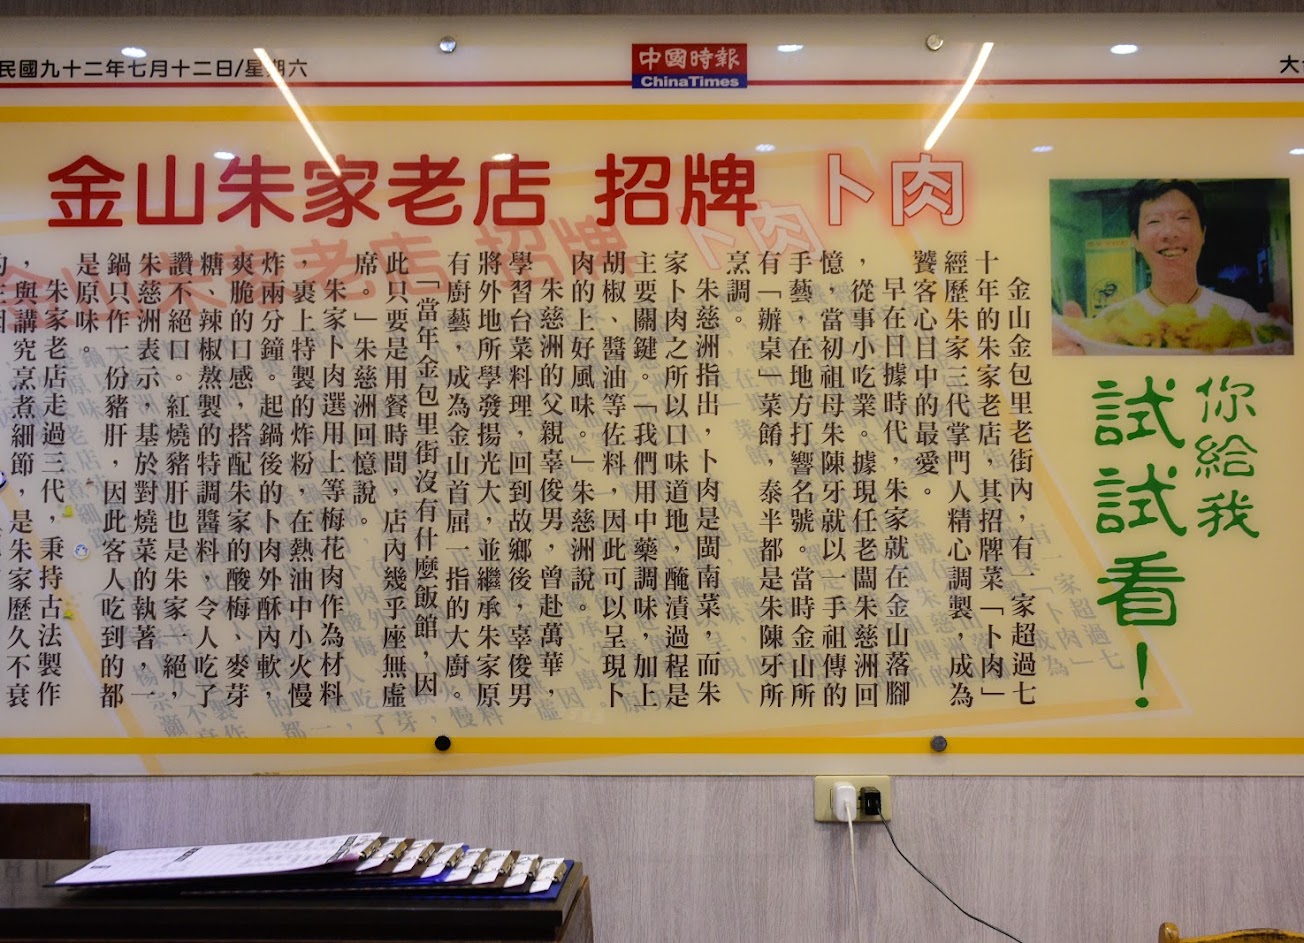 民國九十二年七月十二日/星期六
中國時報
ChinaTimes
大
金山朱家老店 招牌 卜肉
你給我
試試看！
金山金包里老街內，有一家超過七
十年的朱家老店，其招牌菜「卜肉」
經歷朱家三代掌門人精心調製，成為
饕客心目中的最愛。
早在日據時代，朱家就在金山落腳
，從事小吃業。據現任老闆朱慈洲回
憶，當初祖母朱陳牙就以一手祖傳的
手藝，在地方打響名號。當時金山所
有「辦桌」菜餚，泰半都是朱陳牙所
烹調。
朱慈洲指出，卜肉是閩南菜，而朱
家卜肉之所以口味道地，醃漬過程是
主要關鍵。「我們用中藥調味，加上
胡椒、醬油等佐料，因此可以呈現卜
肉的上好風味。」朱慈洲說。
朱慈洲的父親辜俊男，曾赴萬華，
學習台菜料理，回到故鄉後，辜俊男
將外地所學發揚光大，並繼承朱家原
有廚藝，成為金山首屈一指的大廚。
「當年金包里街沒有什麼飯館，因
此只要是用餐時間，店內幾乎座無虛
席。」朱慈洲回憶說。
朱家卜肉選用上等梅花肉作為材料
，裹上特製的炸粉，在熱油中小火慢
炸兩分鐘。起鍋後的卜肉外酥內軟，
爽脆的口感，搭配朱家的酸梅、麥芽
糖、辣椒熬製的特調醬料，令人吃了
讚不絕口。紅燒豬肝也是朱家一絕，
朱慈洲表示，基於對燒菜的執著，一
鍋只作一份豬肝，因此客人吃到的都
是原味。
朱家老店走過三代，秉持古法製作
，與講究烹煮細節，是朱家歷久不衰